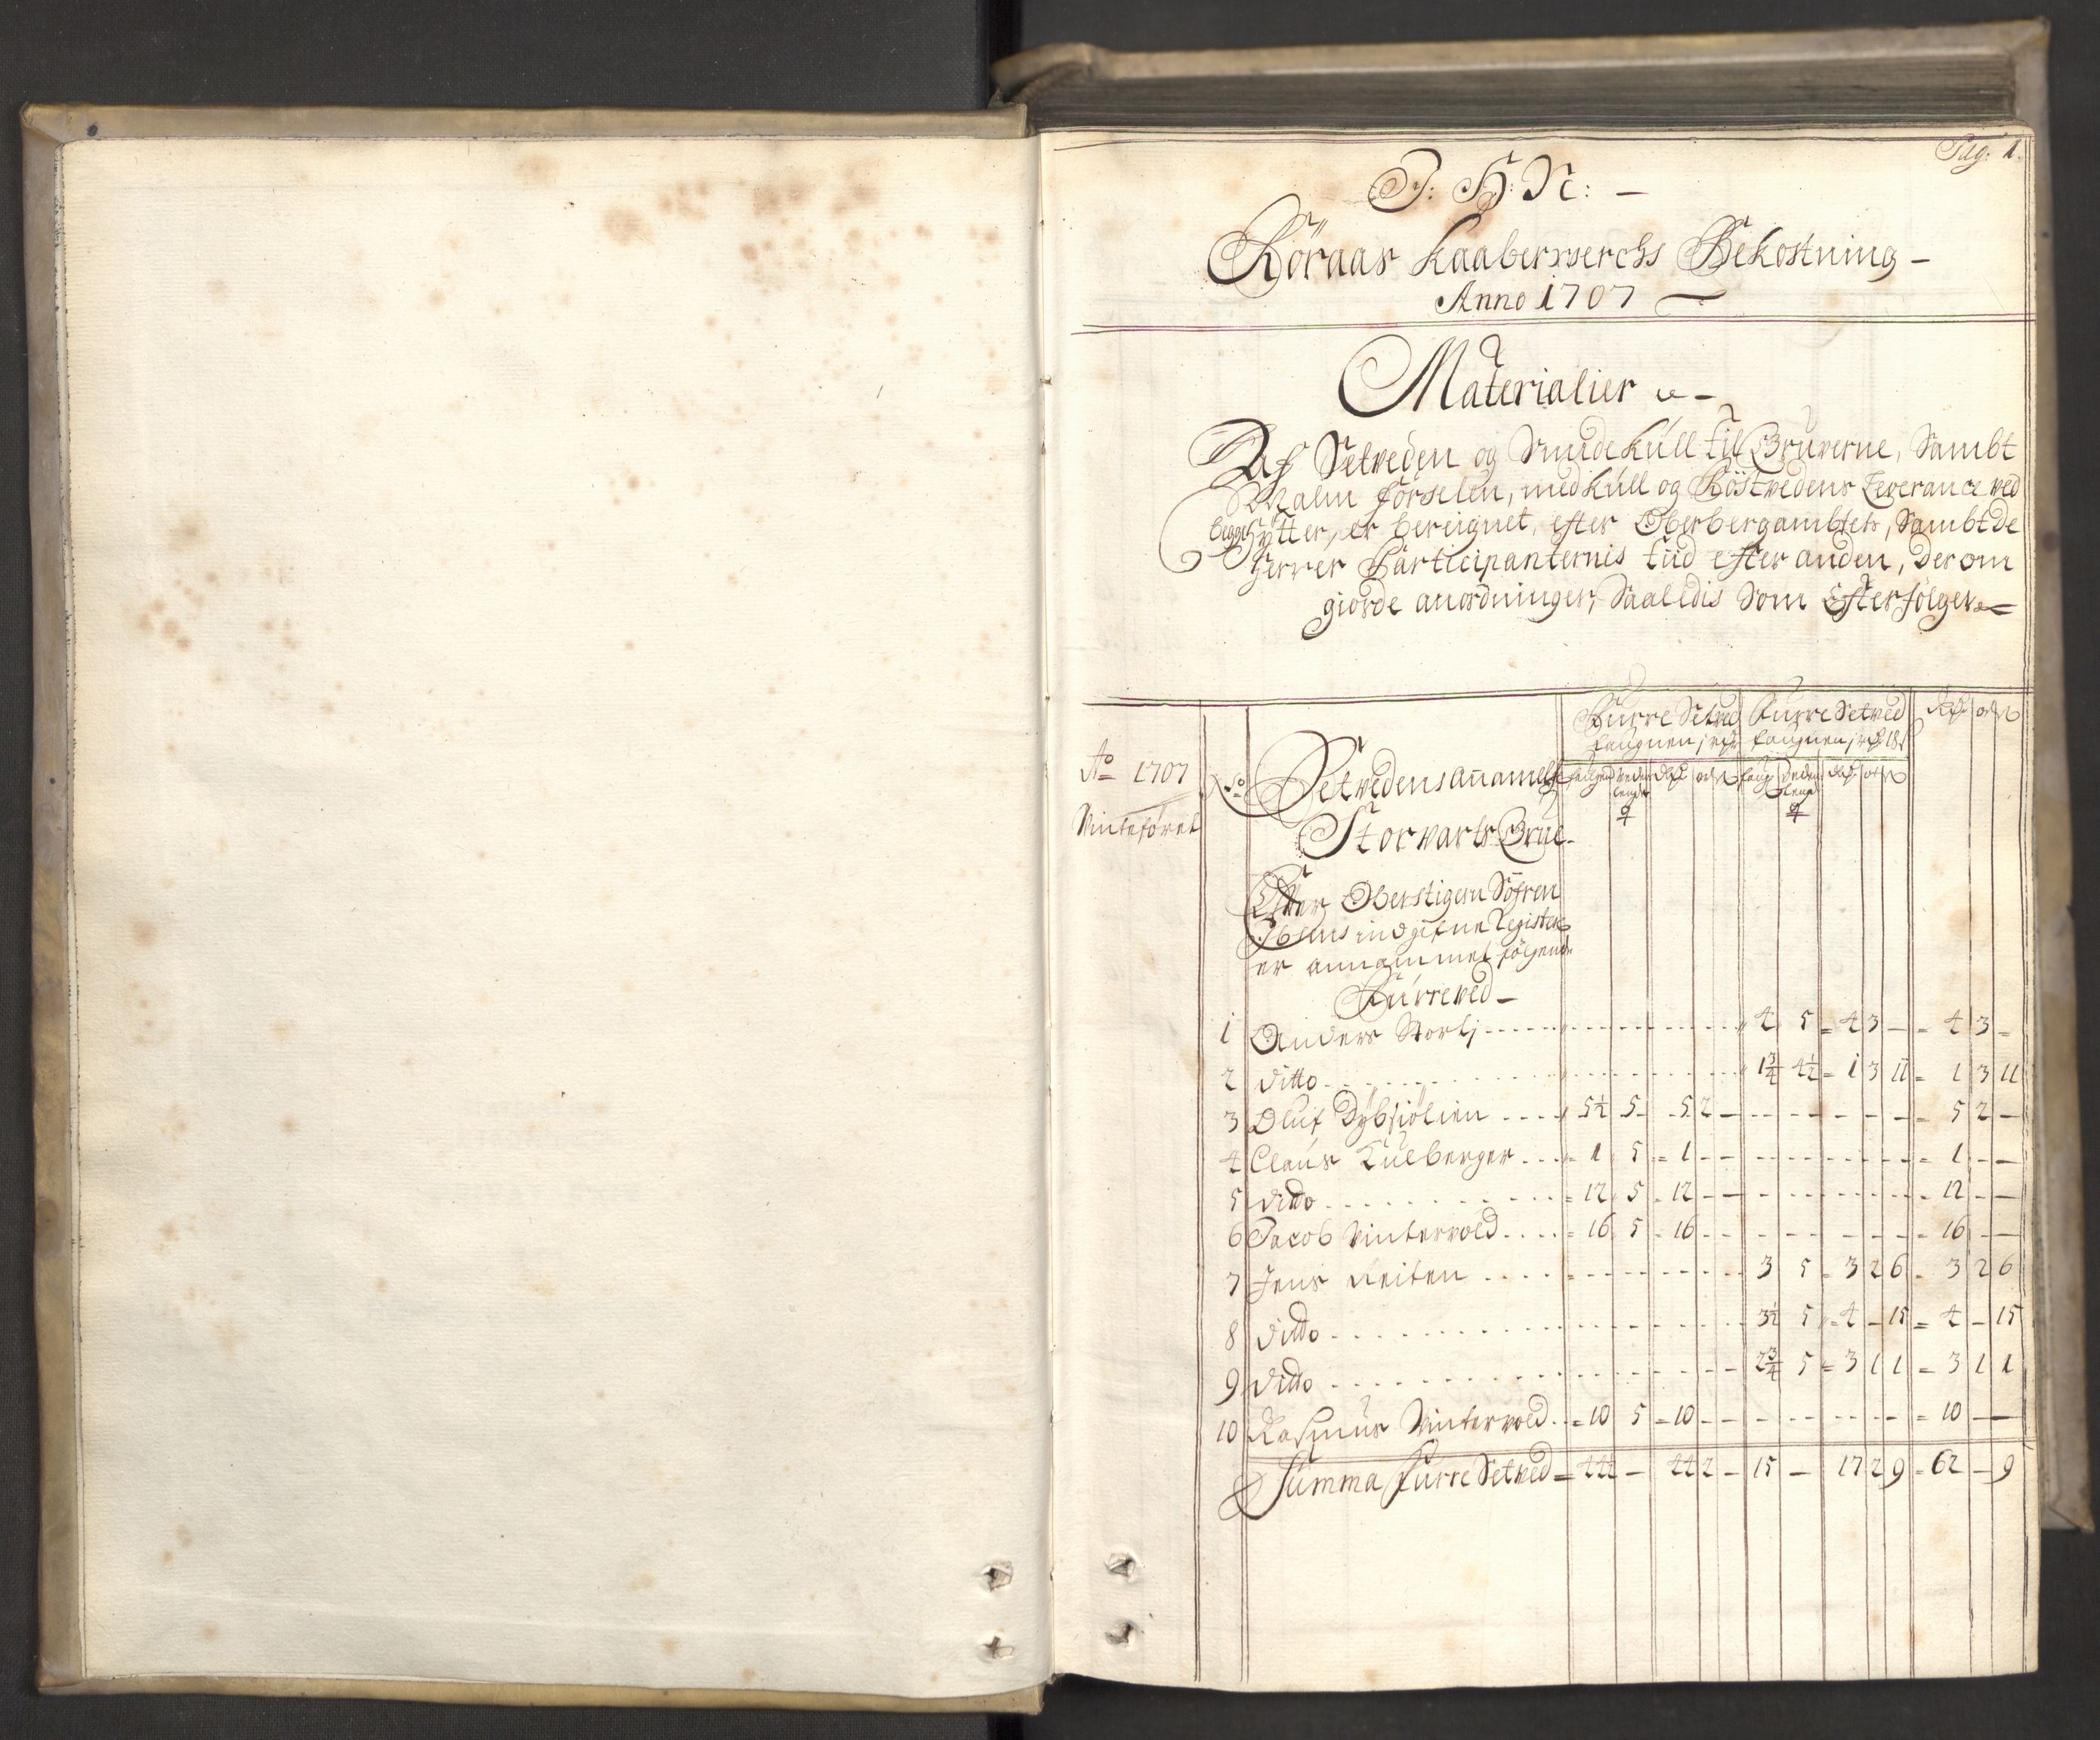 Pag: 1.
J: H: N: —
Röraas Kaaberwerchs Bekostning —
Anno 1707 —
Materialier
Af Setveden og Smidekull til Gruverne, Sambt
Malm förselen, med Kull og Röstvedens Leverance ved
begge Hytter, er bereignet, efter Oberbergambtets, Sambt de
Herrer Participanternis tiid efter anden, der om
giorde anordninger, Saaledis Som Efterfölger
Furre Setved Furre Setved
faugnen faugnen
Ao 1707 No Setvedens annamelse
Vinteføret Storvarts Grue
Efter Oberstigern Söfren
indgifne Register
er annammet følgende
Furreved —
1 Anders Stortj 4 5 4 3 — 4 3 —
2 ditto 1 3/4 4 1/2 1 3 11 1 3 11
3 Oluf Dybsiölien 5 1/2 5 5 2 — 5 2 —
4 Claus Kulberger 1 5 1 — — 1 — —
5 ditto 12 5 12 — — 12 — —
6 Jacob Vintervold 16 5 16 — — 16 — —
7 Jens Reiten 3 5 3 2 6 3 2 6
8 ditto 3 1/2 5 4 — 15 4 — 15
9 ditto 2 3/4 5 3 1 1 3 1 1
10 Rasmus Vintervold 10 5 10 — — 10 — —
Summa Furre Setved 44 1/2 — 44 2 — 15 — 17 2 9 62 — 9